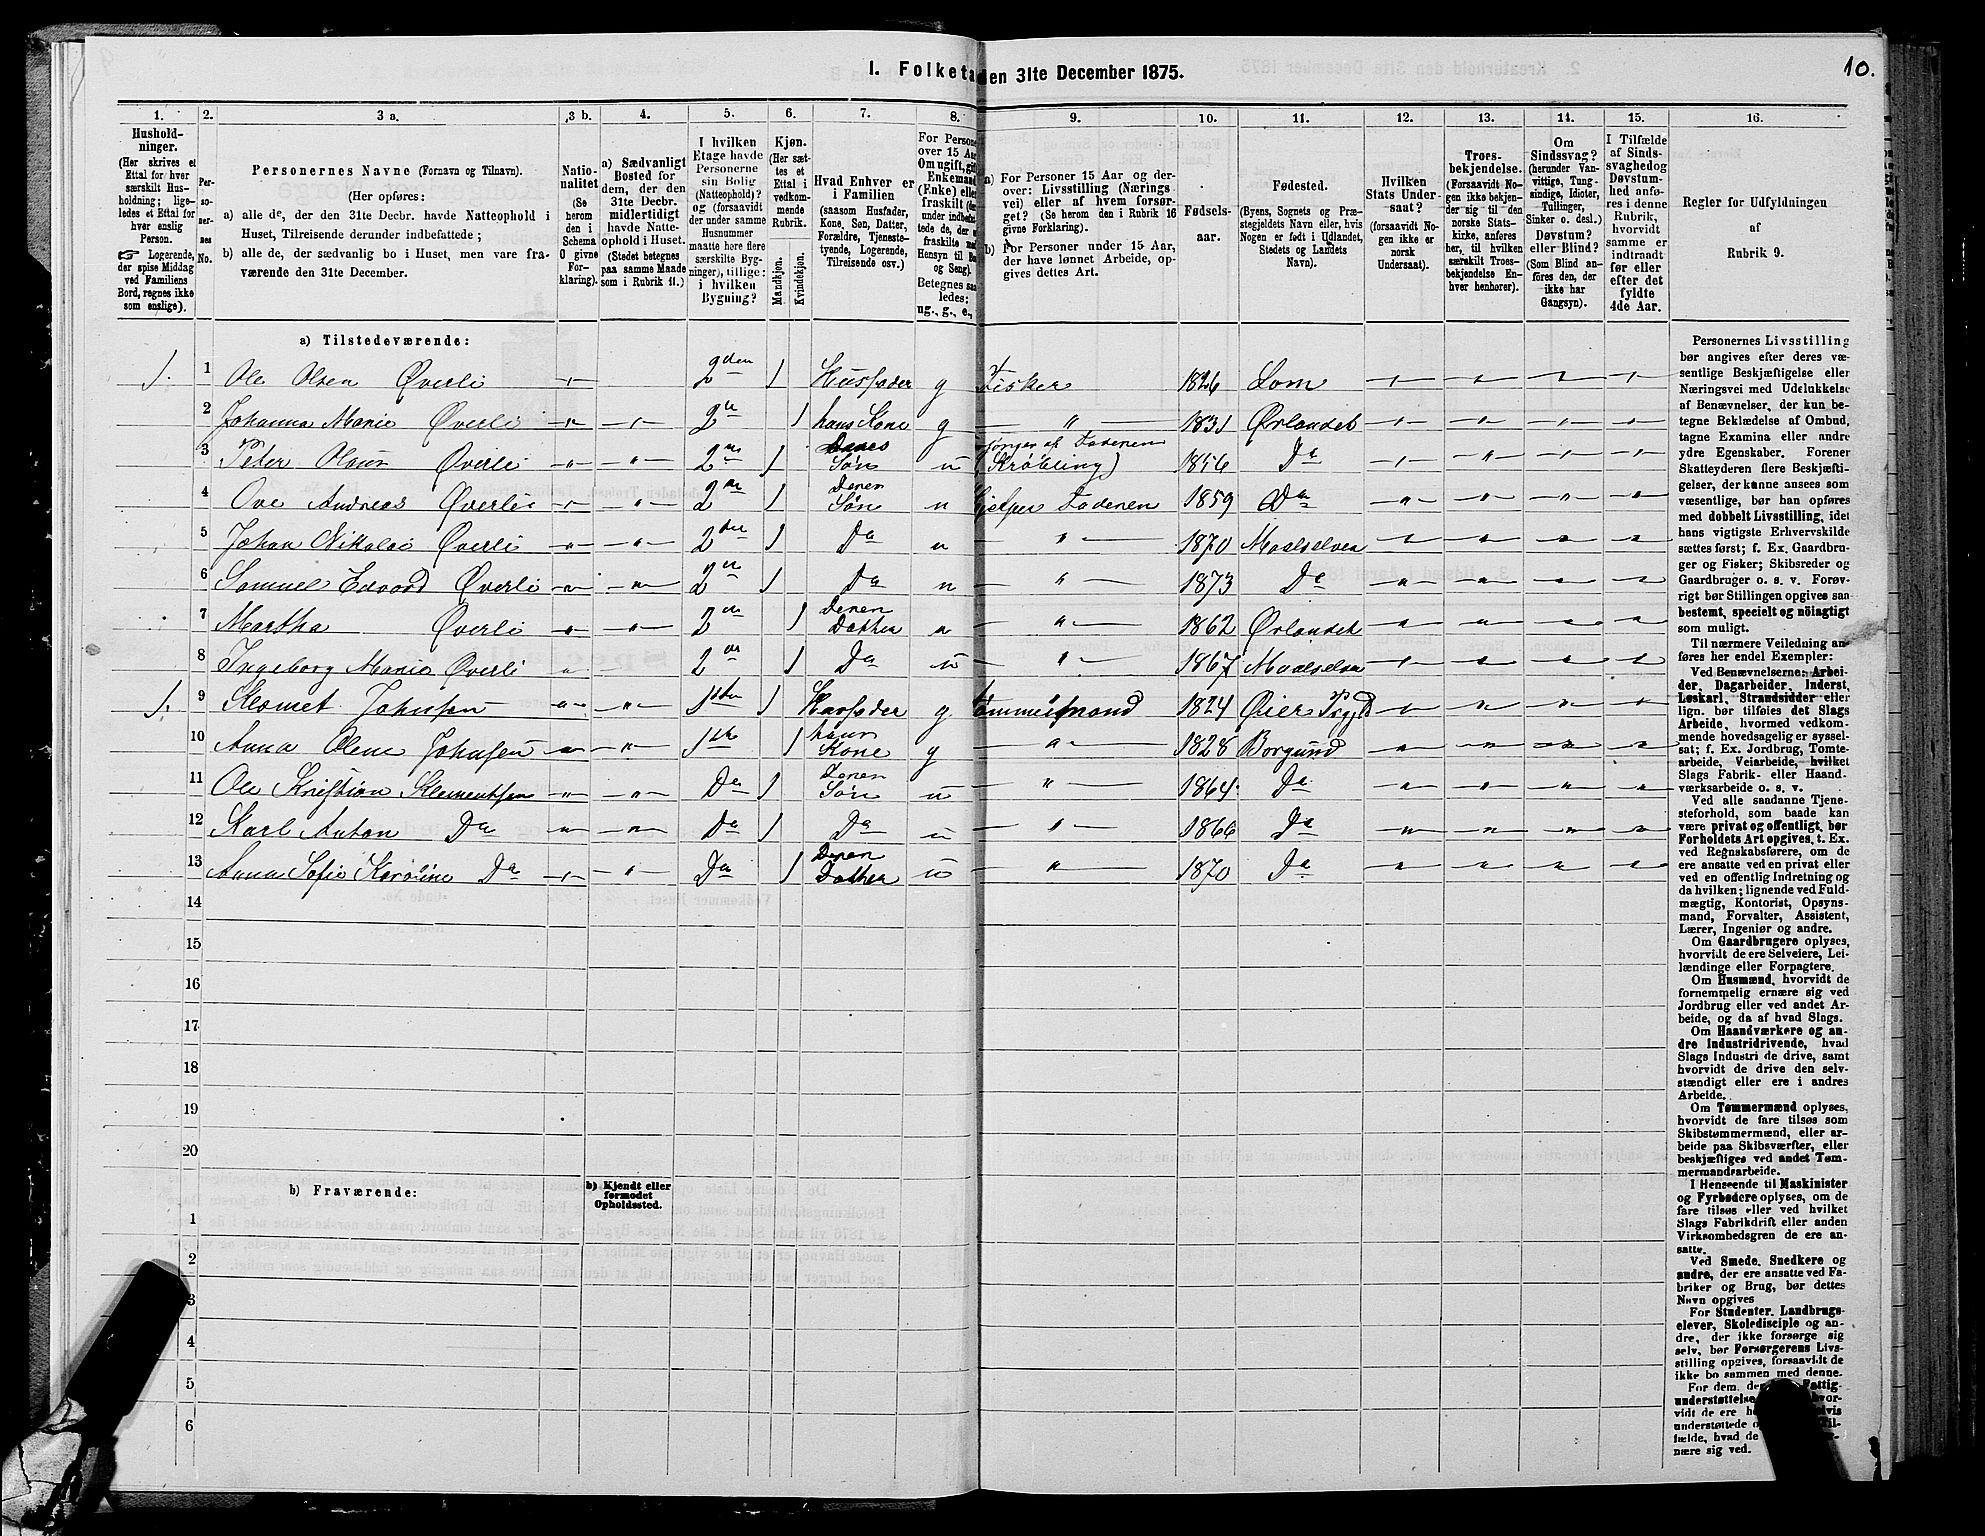 10.
I. Folketa
en 31te December 1875.
1.
2.
3 a.
3 b.
4.
5.
6.
7.
8.
9.
10.
11.
12.
13.
14.
15.
16.
Hushold-
ninger.
(Her skrives et
Ettal for hver
særskilt Hus-
holdning; lige-
ledes et Ettal for
hver enslig
Person.
☞ Logerende,
der spise Middag
ved Familiens
Bord, regnes ikke
som enslige).
Per-
so-
ner-
nes
No.
Personernes Navne (Fornavn og Tilnavn).
(Her opføres:
a) alle de, der den 31te Decbr. havde Natteophold i
Huset, Tilreisende derunder indbefattede;
b) alle de, der sædvanlig bo i Huset, men vare fra-
værende den 31te December.
Natio-
nalitet
(Se
herom
den i
Schema
O givne
For-
klaring).
a) Sædvanligt
Bosted for
dem, der den
31te Decbr.
midlertidigt
havde Natte-
ophold i Huset.
(Stedet betegnes
paa samme Maade
som i Rubrik 11.)
I hvilken
Etage havde
Personerne
sin Bolig
(Natteophold)?
og (forsaavidt
der under samme
Husnummer
maatte høre flere
særskilte Byg-
ninger), tillige:
i hvilken
Bygning?
Kjøn.
(Her sæt-
tes et
Ettal i
vedkom-
mende
Rubrik.
Mandkjøn.
Kvindekjøn.
Hvad Enhver er
i Familien
(saasom Husfader,
Kone, Søn, Datter,
Forældre, Tjeneste-
tyende, Logerende,
Tilreisende osv.)
For Persone
over 15 Aar
Om ugift, gift
Enkemand
(Enke) eller
fraskilt
Betegnes saa
ledes:
ug., g., e.,
a) For Personer 15 Aar og der-
over: Livsstilling (Nærings
vei) eller af hvem forsør-
get? (Se herom den i Rubrik 16
givne Forklaring).
b) For Personer under 15 Aar,
der have lønnet Arbeide, op-
gives dettes Art.
Fødsels-
aar.
Fødested.
(Byens, Sognets og Præ-
stegjeldets Navn eller, hvis
Nogen er født i Udlandet,
Stedets og Landets
Navn).
Hvilken
Stats Under-
saat?
(forsaavidt No-
gen ikke er
norsk
Undersaat).
Troes-
bekjendelse.
(Forsaavidt No-
gen ikke bekjen-
der sig til den
norske Stats-
kirke, anføres
her, til hvilken
særskilt Troes-
bekjendelse En-
hver henhører).
Om
Sindssvag?
(herunder Van-
vittige, Tung-
sindige, Idioter,
Tullinger,
Sinker o. desl.)
Døvstum?
eller Blind?
(Som Blind an-
føres den, der
ikke har
Gangsyn).
I Tilfælde
af Sinds-
svaghedog
Døvstum-
hed anfø-
res i denne
Rubrik,
hvorvidt
samme er
indtraadt
før eller
efter det
fyldte
4de Aar.
Regler for Udfyldningen
af
Rubrik 9.
a) Tilstedeværende:
1. 1 Ole Olsen Øverli 2den 1 Husfader g Fisker 1826 Lom
2 Johanna Marie Øverli 2 1 hans Kone g " 1831 Ørlandet
3 Peter Olaus Øverli 2 1 Søn u (Skrøbling) 1856 Do
4 Ove Andreas Øverli 2 1 Deres Søn u Hjelper Faderen 1859 Do
5 Johan Nikolai Øverli 2den 1 Do u " 1870 Maalselven
6 Samuel Edvard Øverli 2 1 Do u " 1873 Do
7 Martha Øverli 2 1 Deres Datter u " 1862 Ørlandet
8 Ingeborg Marie Øverli 2 1 Do u " 1867 Maalselven
1. 9 Klemet Johnsen 1ste 1 Husfader g Tømmermand 1824 Øier
10 Anna Oline Johnsen 1ste 1 hans Kone g " 1828 Borgund
11 Ole Kristian Klementsen Do 1 Deres Søn u " 1864. Do
12 Karl Anton Do Do 1 Do u " 1866 Do
13 Anna Sofie Karoline Do Do 1 Deres Datter u " 1870 Do
14
15
16
17
18
19
20
b) Fraværende:
b) Kjendt eller
formodet
Opholdssted.
1
2
3
4
5
6
Personernes Livsstilling
bør angives efter deres væ-
sentlige Beskjæftigelse eller
Næringsvei med Udelukkelse
af Benævnelser, der kun be-
tegne Beklædelse af Ombud,
tagne Examina eller andre
ydre Egenskaber. Forener
Skatteyderen flere Beskjæfti-
gelser, der kunne ansees som
væsentlige, bør han opføres
med dobbelt Livsstilling, idet
hans vigtigste Erhvervskilde
sættes først; f. Ex. Gaardbru-
ger og Fisker; Skibsreder og
Gaardbruger o. s. v. Forøv-
rigt bør Stillingen opgives saa
bestemt, specielt og nöiagtigt
som muligt.
Til nærmere Veiledning an-
føres her endel Exempler:
Ved Benævnelserne: Arbei-
der, Dagarbeider, Inderst,
Løskarl, Strandsidder eller
lign. bør tilføies det Slags
Arbeide, hvormed vedkom-
mende hovedsagelig er syssel-
sat; f. Ex. Jordbrug, Tomte-
arbeide, Veiarbeide, hvilket
Slags Fabrik- eller Haand-
værksarbeide o. s. v.
Ved alle saadanne Tjene-
steforhold, som baade kan
være privat og offentligt, bør
Forholdets Art opgives, t. Ex.
ved Regnskabsførere, om de
ere ansatte ved en privat eller
ved en offentlig Indretning og
da hvilken; lignende ved Fuld-
mægtig, Kontorist, Opsyns-
mand, Forvalter, Assistent,
Lærer, Ingeniør og andre.
Om Gaardbrugere oplyses,
hvorvidt de ere Selveiere, Lei-
lændinge eller Forpagtere.
Om Husmænd, hvorvidt de
fornemmelig ernære sig ved
Jordbrug eller ved andet Ar-
beide, og da af hvad Slags.
Om Haandværkere og an-
dre Industridrivende, hvad
Slags Industri de drive, samt
hvorvidt de drive den selv-
stændigt eller ere i andres
Arbeide.
Om Tømmermænd oplyses,
hvorvidt de fare tilsøs som
Skibstømmermænd, eller ar-
beide paa Skibsværfter, eller
beskjæftiges ved andet Tøm-
mermandsarbeide.
I Henseende til Maskinister
og Fyrbødere oplyses, om de
fare tilsøs eller ved hvilket
Slags Fabrikdrift eller anden
Virksombedsgren de ere an-
satte.
Ved Smede, Snedkere og
andre, der ere ansatte ved Fa-
briker og Brug, bør dettes
Navn opgives
For Studenter, Landbrugs-
elever, Skoledisciple og an-
dre, der ikke forsørge sig
selv, bør Forsørgerens Livs-
stilling opgives, forsaavidt de
ikke bo sammen med denne.
For dem, de Fattig-
understøttelse
vidt de ere
understøttede
fælde, hvad de
nære sig ved.